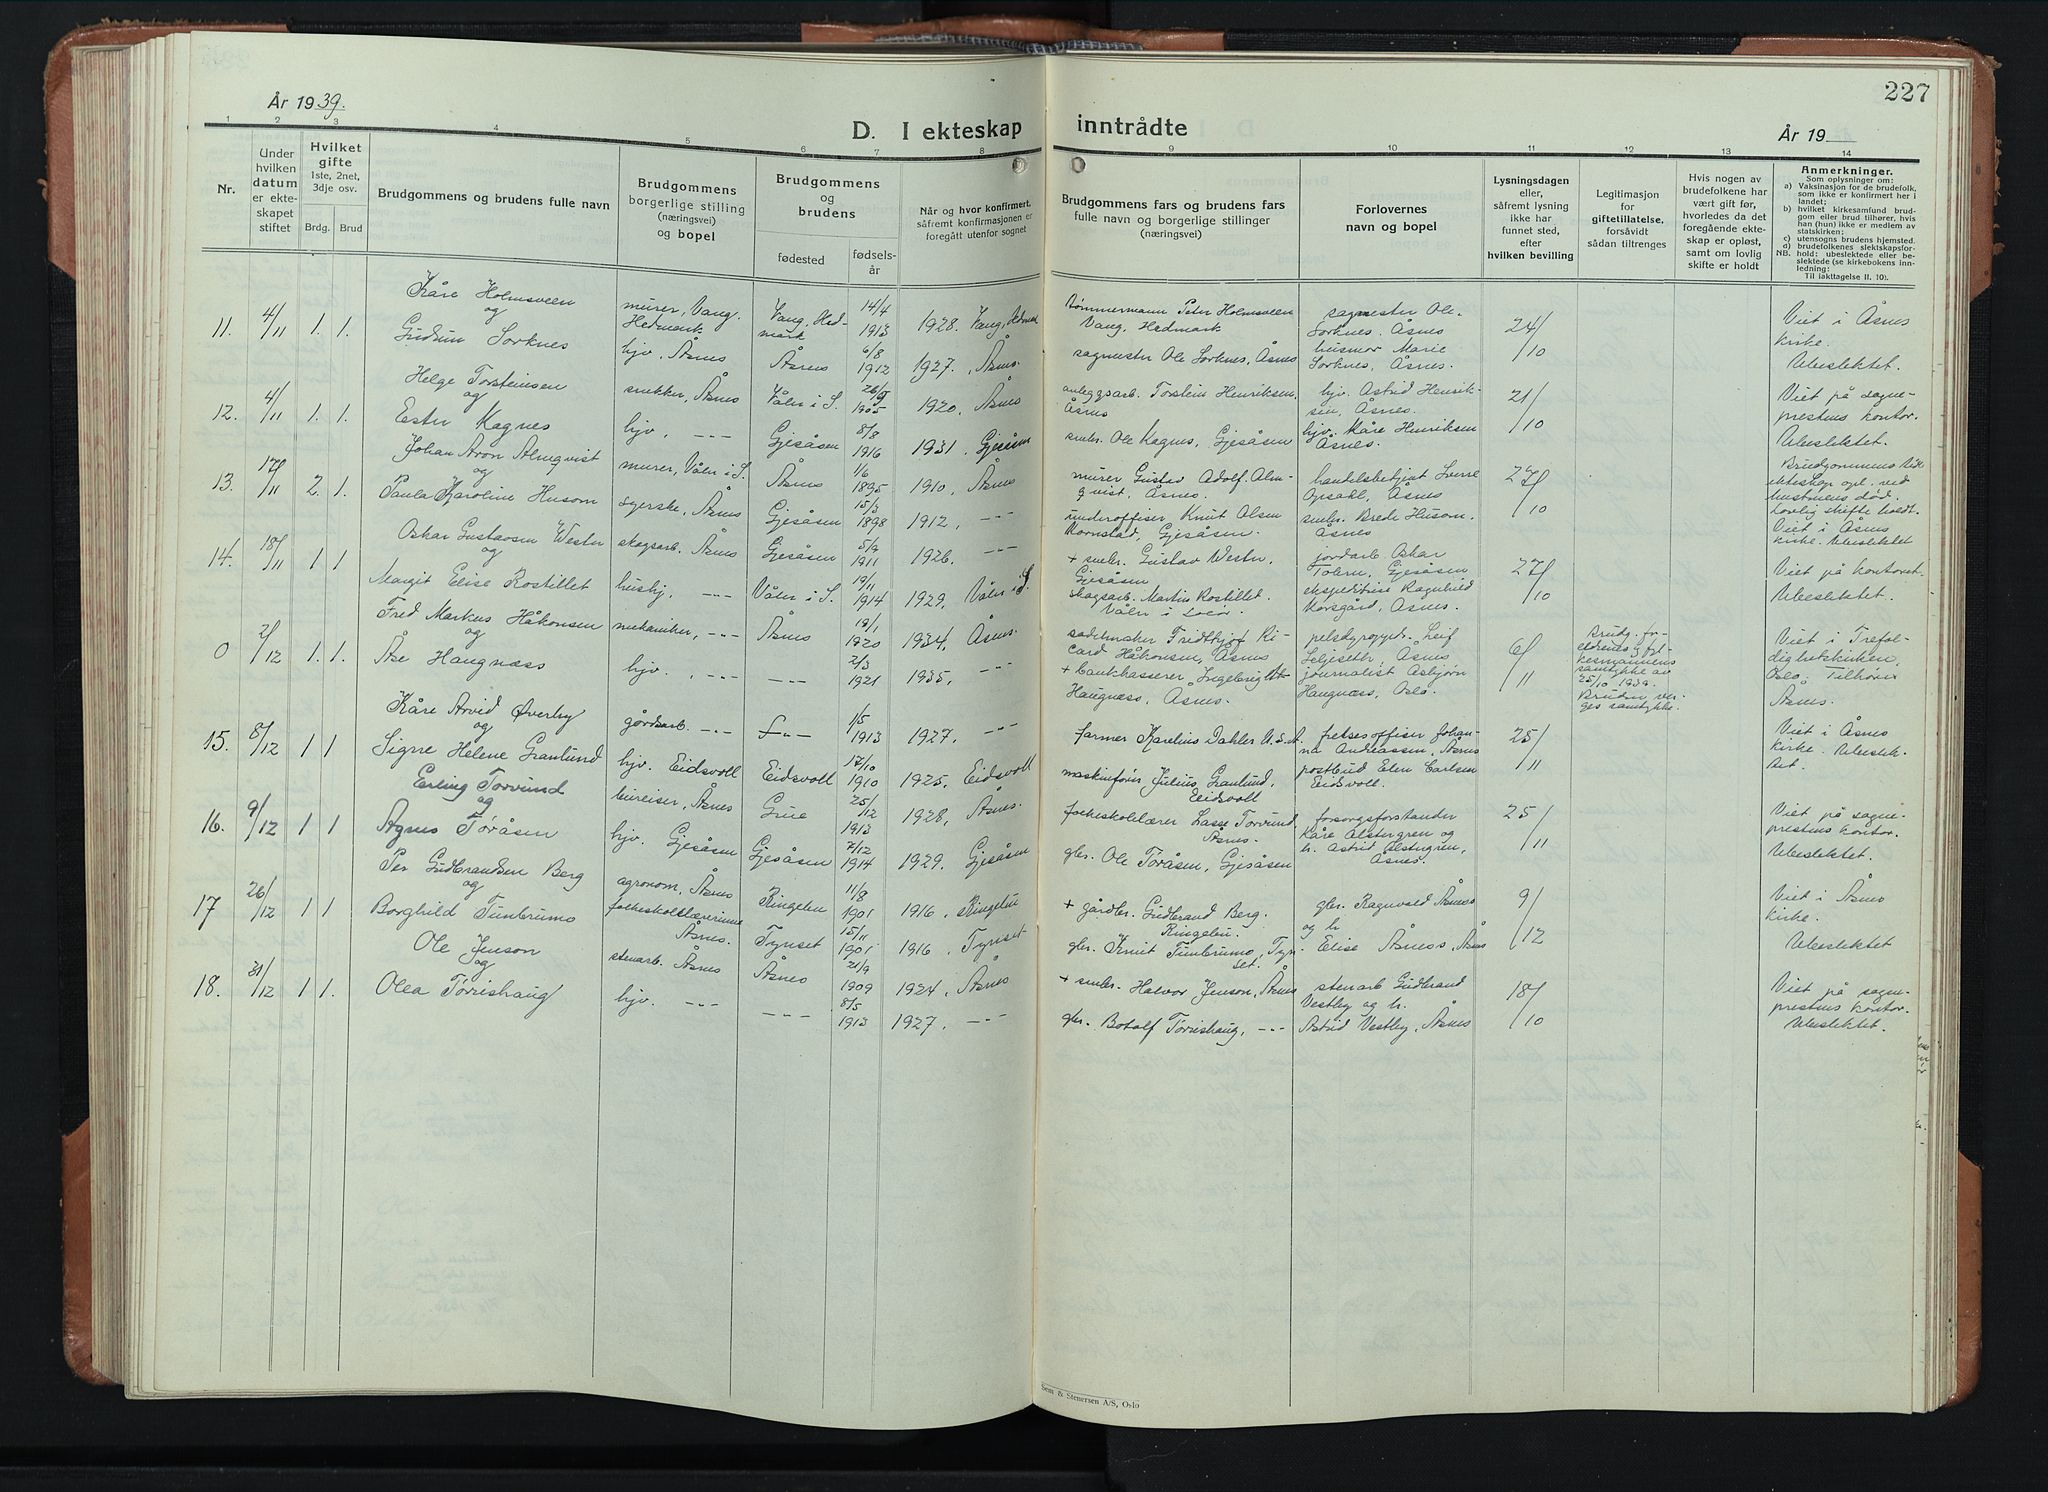 227
År 1939.
D. I ekteskap inntrådte
År 19
1 2 3 4 5 6 7 8 9 10 11 12 13 14
Nr.
Under hvilken datum er ekteskapet stiftet
Hvilket gifte 1ste, 2net, 3dje osv.
Brdg. Brud
Brudgommens og brudens fulle navn
Brudgommens borgerlige stilling (næringsvei) og bopel
Brudgommens og brudens
fødested
fødselsår
Når og hvor konfirmert, såfremt konfirmasjonen er foregått utenfor sognet
Brudgommens fars og brudens fars fulle navn og borgerlige stillinger (næringsvei)
Forlovernes navn og bopel
Lysningsdagen eller, såfremt lysning ikke har funnet sted, efter hvilken bevilling
Legitimasjon for giftetillatelse, forsåvidt sådan tiltrenges
Hvis nogen av brudefolkene har vært gift før, hvorledes da det foregående ekteskap er opløst, samt om lovlig skifte er holdt
Anmerkninger.
Som oplysninger om:
a) Vaksinasjon for de brudefolk, som ikke er konfirmert her i landet;
b) hvilket kirkesamfund brudgom eller brud tilhører, hvis han (hun) ikke er medlem av statskirken;
c) utensogns brudens hjemsted.
d) brudefolkenes slektskapsforhold: ubeslektede eller beslektede (se kirkebokens innledning:
NB.
Til iakttagelse II. 10).
11. 4/11 1. 1.
Kåre Holmsveen og murer, Vang, Hedmark Vang, Hedmark 14/4 1913 1928. Vang, Hedmark tømmermann Peter Holmsveen Vang, Hedmark sagmester Ole Sorknes. Åsnes 24/10 Viet i Åsnes kirke.
Gudrun Sorknes hjv., Åsnes Åsnes 6/8 1912 1927. Åsnes. sagmester Ole Sorknes, Åsnes husmor Marie Sorknes, Åsnes. Ubeslektet.
12. 4/11 1. 1.
Helge Torsteinsen og snekker, Åsnes Våler i S. 26/9 1905 1920, Åsnes anleggsarb. Torstein Henriksen, Åsnes hjv. Astrid Henriksen, Åsnes. 21/10 Viet på sogneprestens kontor.
Ester Kagnes hjv., -"- Gjesåsen 8/8 1916 1931. Gjesåsen småbr. Ole Kagnes, Gjesåsen hjv. Kåre Henriksen Åsnes. Ubeslektet
13. 17/11 2. 1.
Johan Aron Almqvist og murer, Våler i S. Åsnes 1/6 1895 1910, Åsnes murer Gustav Adolf Almqvist, Åsnes. handelsbetjent Sverre Opsahl, Åsnes 27/10 Brudgommens 1ste ekteskap opl. ved hustruens død. Lovlig skifte holdt.
Paula Karoline Husom syerske, Åsnes Gjesåsen 15/3 1898 1912, -"- underoffiser Knut Olsen Kornstad, Gjesåsen. småbr. Brede Husom. Åsnes Viet i Åsnes kirke. Ubeslektet
14. 18/11 1 1
Oskar Gustavsen Wester og skogsarb. Åsnes Gjesåsen 5/9 1911 1926. -"- + småbr. Gustav Wester, Gjesåsen jordarb. Oskar Tolern, Gjesåsen 27/10 Viet på kontoret.
Margit Elise Rostillet hushj., -"- Våler i S. 19/11 1914 1929, Våler i S. skogsarb. Martin Rostillet. Våler i Solør. ekspeditrise Ragnhild Korsgård, Åsnes. Ubeslektet.
0 2/12 1. 1.
Fred Markus Håkonsen og mekaniker, -"- Åsnes 19/1 1920 1934, Åsnes. sadelmaker Fridthjof Ricard Håkonsen, Åsnes pelsdyroppdr. Leif Seljeseth, Åsnes 6/11 Brudg. foreldrenes og fylkesmannens samtykke av 25/10 1939. Viet i Trefoldighetskirken, Oslo. Tilhører Åsnes.
Åse Haugnæss hjv., -"- -"- 2/3 1921 1935. -"- + bankkasserer Ingebrigt Haugnæss, Åsnes. journalist Asbjørn Haugnæss, Oslo. Bruden verges samtykke.
15. 8/12 1 1
Kåre Arvid Øverby og gårdsarb. -"- -"- 1/5 1913 1927, -"- farmer Karelius Dahler U.S.A. pelsesoffiser Johanna Andreassen, Åsnes 25/11 Viet i Åsnes kirke. Ubeslektet.
Signe Helene Granlund hjv. Eidsvoll Eidsvoll 17/10 1910 1925. Eidsvoll maskinfører Julius Granlund, Eidsvoll postbud Elen Carlsen Eidsvoll.
16. 9/12 1 1
Erling Torvund og bureiser, Åsnes Grue 25/12 1913 1928, Åsnes. folkeskolelærer Lasse Torvund, Åsnes. forsorgsforstander Kåre Alstergren og 25/11 Viet på sogneprestens kontor.
Agnes Toråsen hjv. Gjesåsen Gjesåsen 7/12 1914 1929. Gjesåsen gbr. Ole Toråsen, Gjesåsen fr. Astrid Alstergren, Åsnes. Ubeslektet.
17 26/12 1 1
Per Gudbrandsen Berg og agronom, Åsnes Ringebu 11/8 1901 1916, Ringebu + gårdbr. Gudbrand Berg. Ringebu. gbr. Ragnvald Åsnes og fr. 9/12 Viet i Åsnes kirke.
Borghild Tunbrumo folkeskollærerinne Åsnes. Tynset 15/11 1901 1916. Tynset gbr. Knut Tunbrumo, Tynset. Elise Åsnes, Åsnes Ubeslektet
18. 31/12 1 1.
Ole Jenson og stenarb. Åsnes Åsnes 21/9 1909 1924, Åsnes + småbr. Halvor Jenson, Åsnes stenarb. Gudbrand Vestby og fr. 18/10 Viet på sogneprestens kontor.
Olea Tørrishaug hjv. -"- -"- 8/5 1913 1927. -"- gbr. Botolf Tørrishaug, -"- Astrid Vestby, Åsnes Ubeslektet.
Sem & Stenersen A/S, Oslo